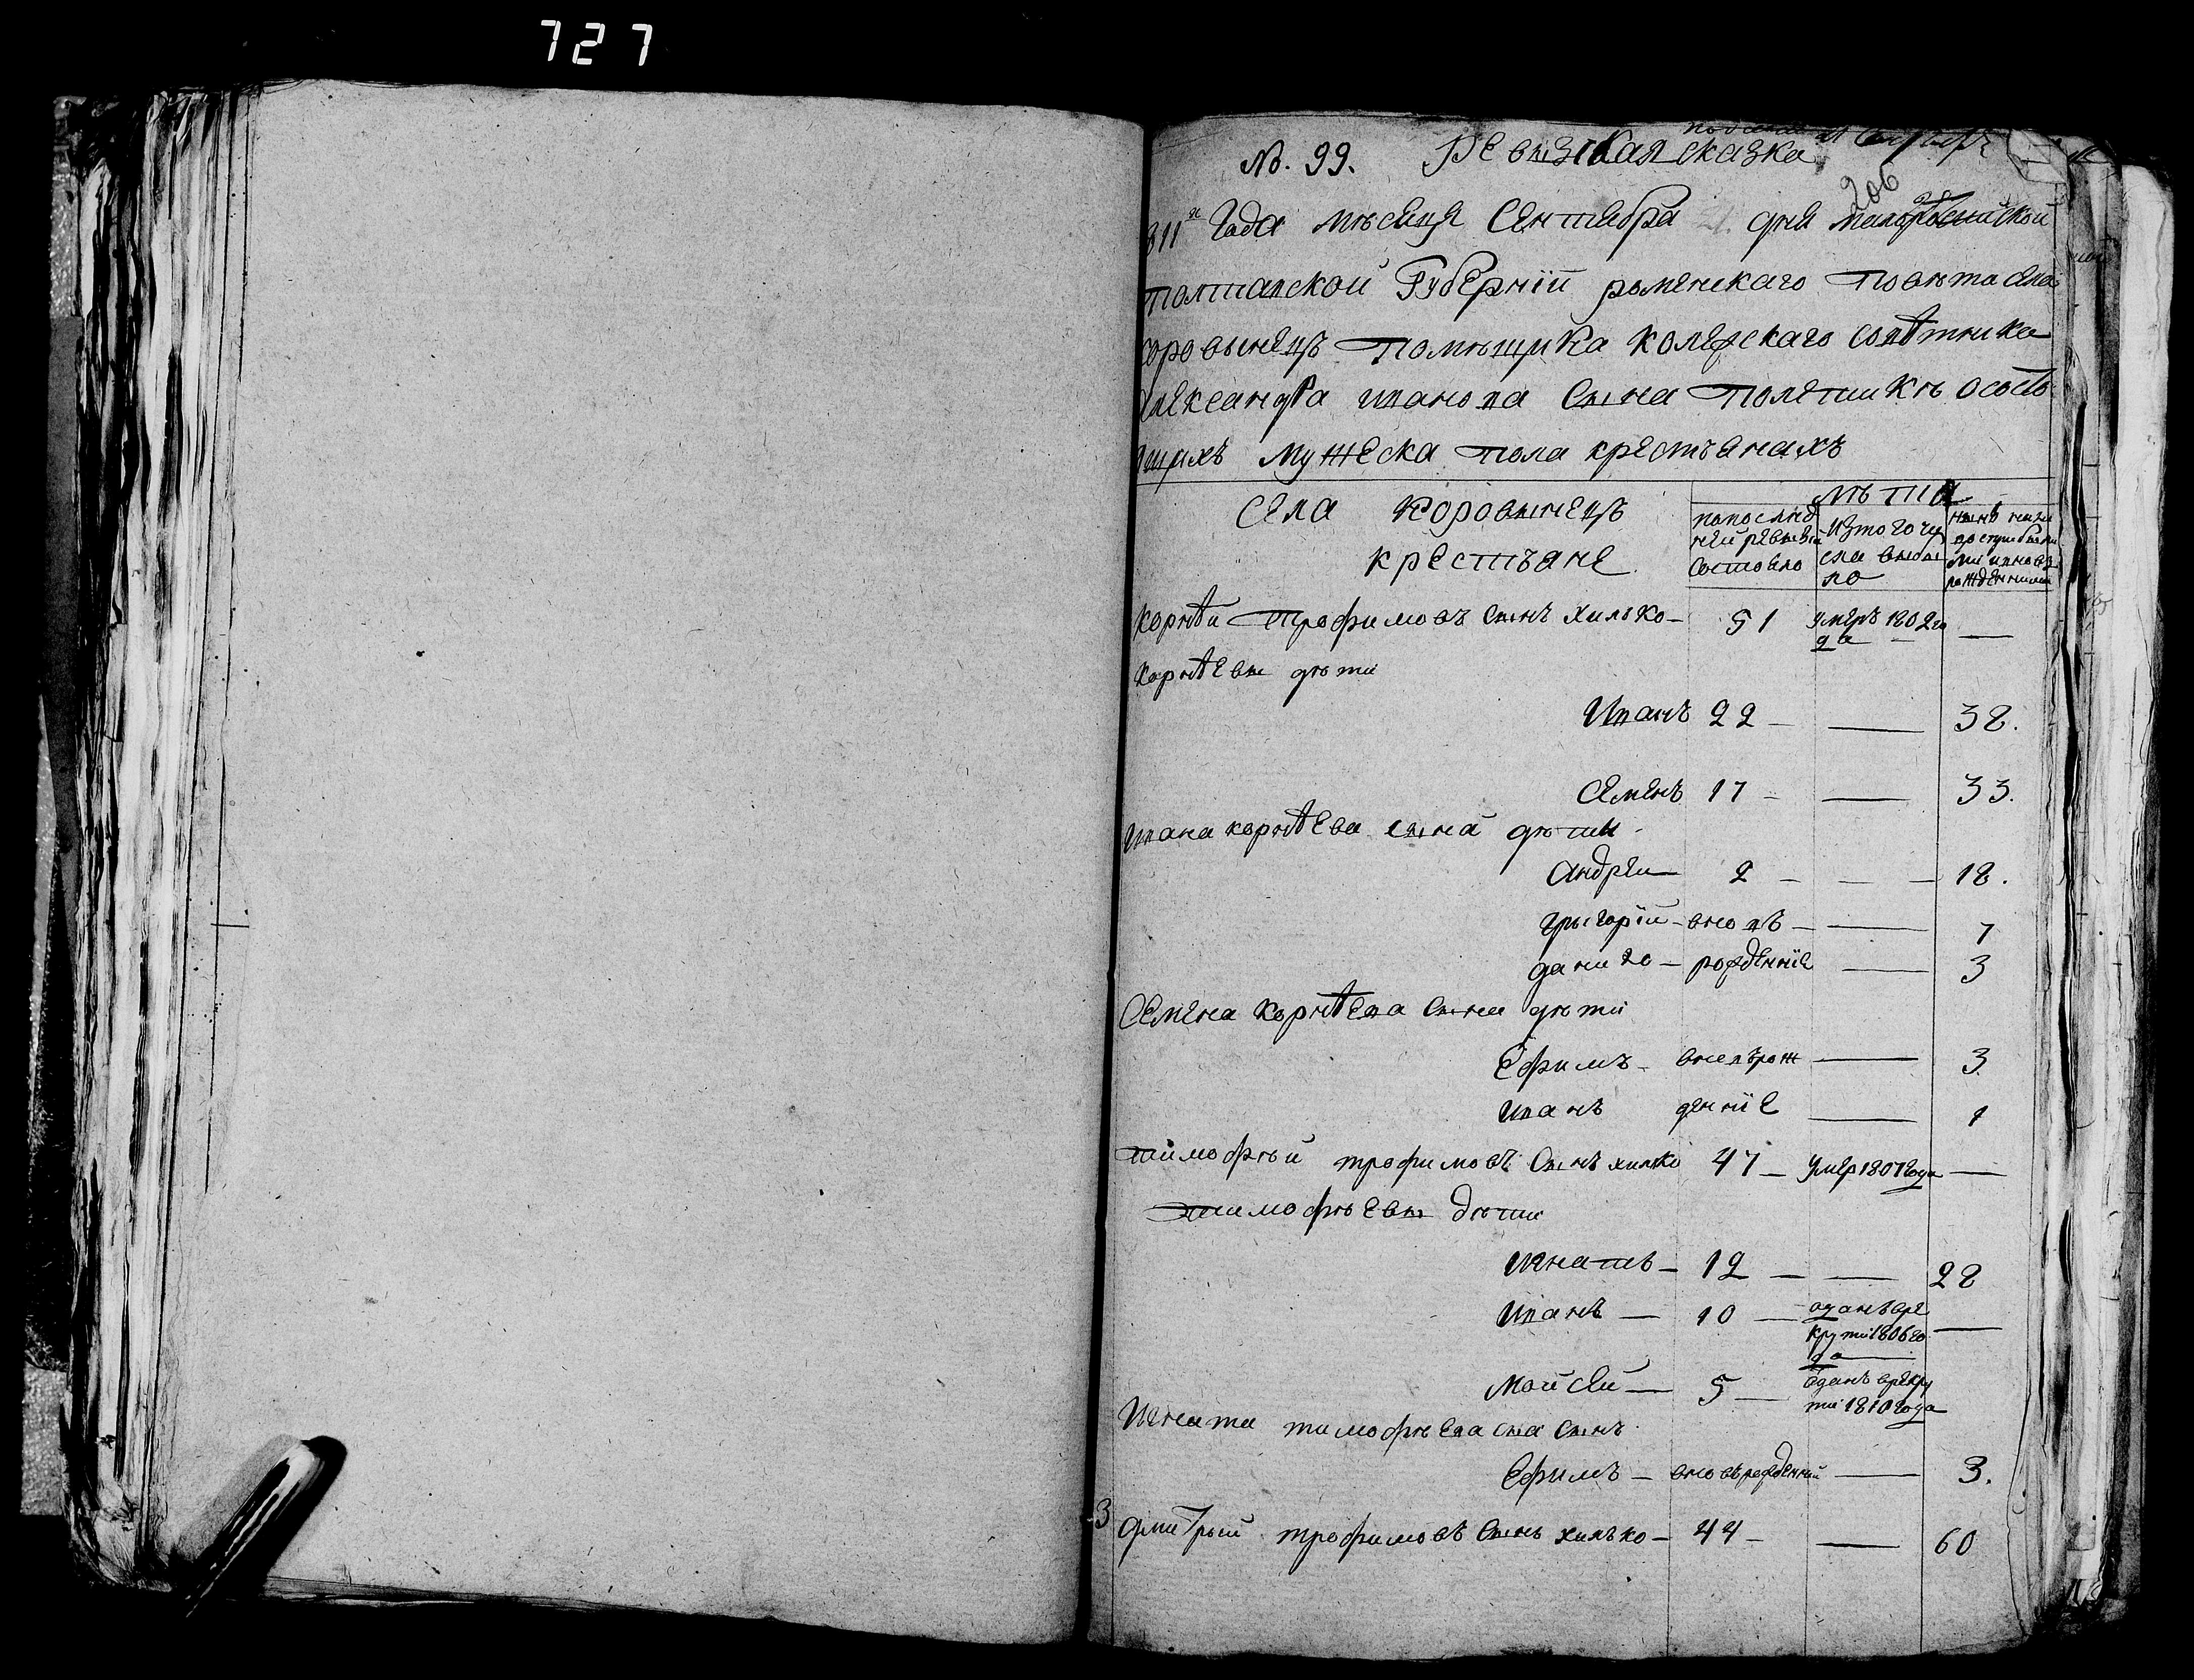 727
No. 99. Ревизская сказка
206
811го Года мѣсяця Сентября 21 дня малоросійской
полтавской Губерніи роменскаго повѣта села
коровынець помѣщика колежскаго совѣтника
Александра иванова сына полетики о состо
ящихъ мужеска пола крестъянахъ
Села Коровынець
крестъяне
лѣта
по послѣд
ней ревызіи
состояло
изтого чи
сла выбы
ло
нынѣ
рожденними
корнѣй трофимовъ сынъ хилько — 51 умеръ 1802 го
да —
корнѣевы дѣти
Иванъ 22 — — 38.
Семенъ 17 — — 33.
Ивана корнѣева сына дѣти
андрей — 2 — — 18.
григорій — вновь — — 7
данило — рожденніе — 3
Семена корнѣева сына дѣти
Ефимъ — вновърож — 3
иванъ денніе — 1
тимофѣй трофимовъ сынъ хилко 47 — умер 1807 года —
тимофѣевы дѣти
игнатъ — 12 — — 28
иванъ — 10 — оданъ вре
крути 1806 го —
да —
мойсей — 5 — оданъ врекру
ти 1810 года
Игната тимофѣева сна сынъ
Ефимъ — вновърожденный — 3.
3 дмитрый трофимовъ сынъ хилько — 44 — — 60